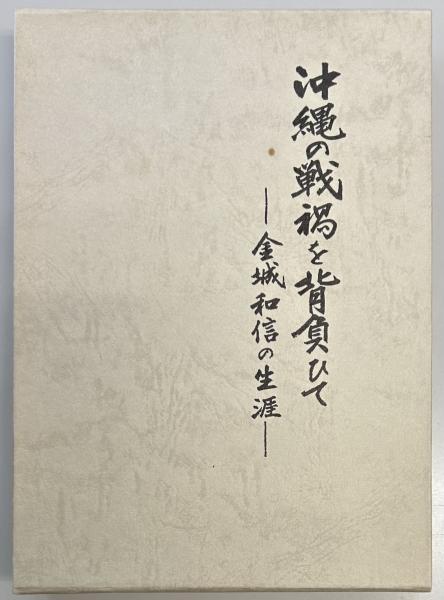 沖縄の戦禍を背負ひて
―金城和信の生涯―